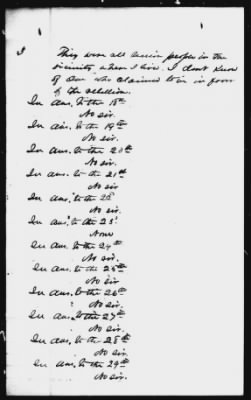 They were all Union people in the
vicinity where I live. I don't know
of one who claimed to be in favor
of the rebellion.
In Ans. to the 18th
No sir.
In Ans. to the 19th
No sir.
In Ans. to the 20th
No sir.
In Ans. to the 21st
No sir
In Ans. to the 22
No sir
In Ans. to the 23
None
In Ans. to the 24th
No sir.
In Ans. to the 25th
No sir
In Ans. to the 26th
No sir.
In Ans. to the 27th
No sir.
In Ans. to the 28th
No sir.
In Ans. to the 29th
No sir.